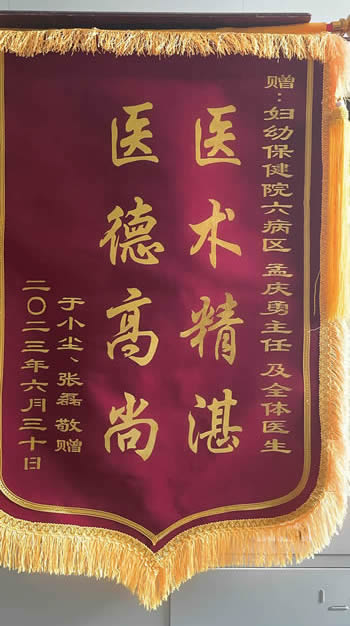 赠：妇幼保健院六病区 孟庆勇主任 及全体医生
医术精湛
医德高尚
于小尘、张磊 敬赠
二〇二三年六月三十日